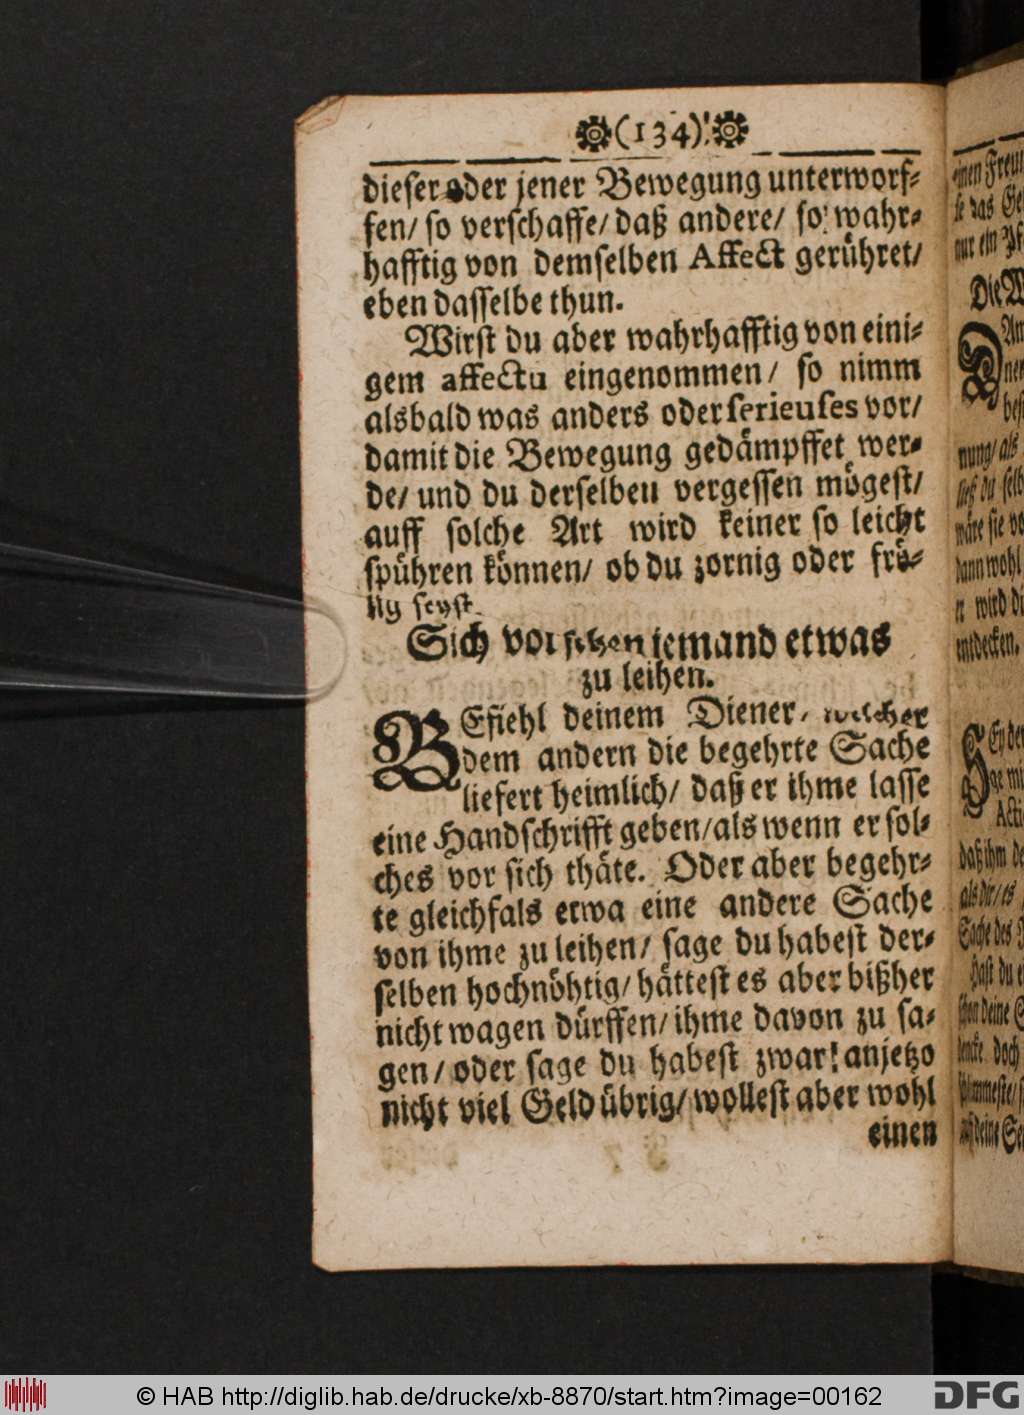 (134)
dieser oder jener Bewegung unterworf-
fen/ so verschaffe/ daß andere/ so wahr-
hafftig von demselben Affect gerühret/
eben dasselbe thun.
Wirst du aber wahrhafftig von eini-
gem affectu eingenommen/ so nimm
alsbald was anders oder serieuses vor/
damit die Bewegung gedämpffet wer-
de/ und du derselben vergessen mögest/
auff solche Art wird keiner so leicht
spühren können/ ob du zornig oder frö-
lig seyst.
Sich vor sehen jemand etwas
zu leihen.
BEfiehl deinem Diener/ welcher
dem andern die begehrte Sache
liefert heimlich/ daß er ihme lasse
eine Handschrifft geben/als wenn er sol-
ches vor sich thäte. Oder aber begehr-
te gleichfals etwa eine andere Sache
von ihme zu leihen/ sage du habest der-
selben hochnöhtig/ hättest es aber bißher
nicht wagen dürffen/ ihme davon zu sa-
gen/ oder sage du habest zwar anjetzo
nicht viel Geld übrig/ wollest aber wohl
einen
einen
se das
nur ein
Die
nung/als
wäre sie
dann wohl
er wird
entdecken.
daß ihm
als dir/es
Sache des
Hast du
doch
© HAB http://diglib.hab.de/drucke/xb-8870/start.htm?image=00162
DFG